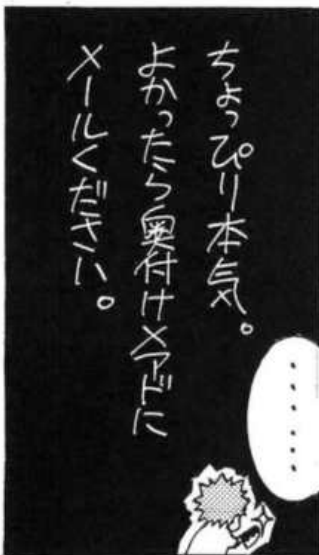 ちょっぴり本気。
よかったら奥付けメアドに
メールください。
・・・・・・